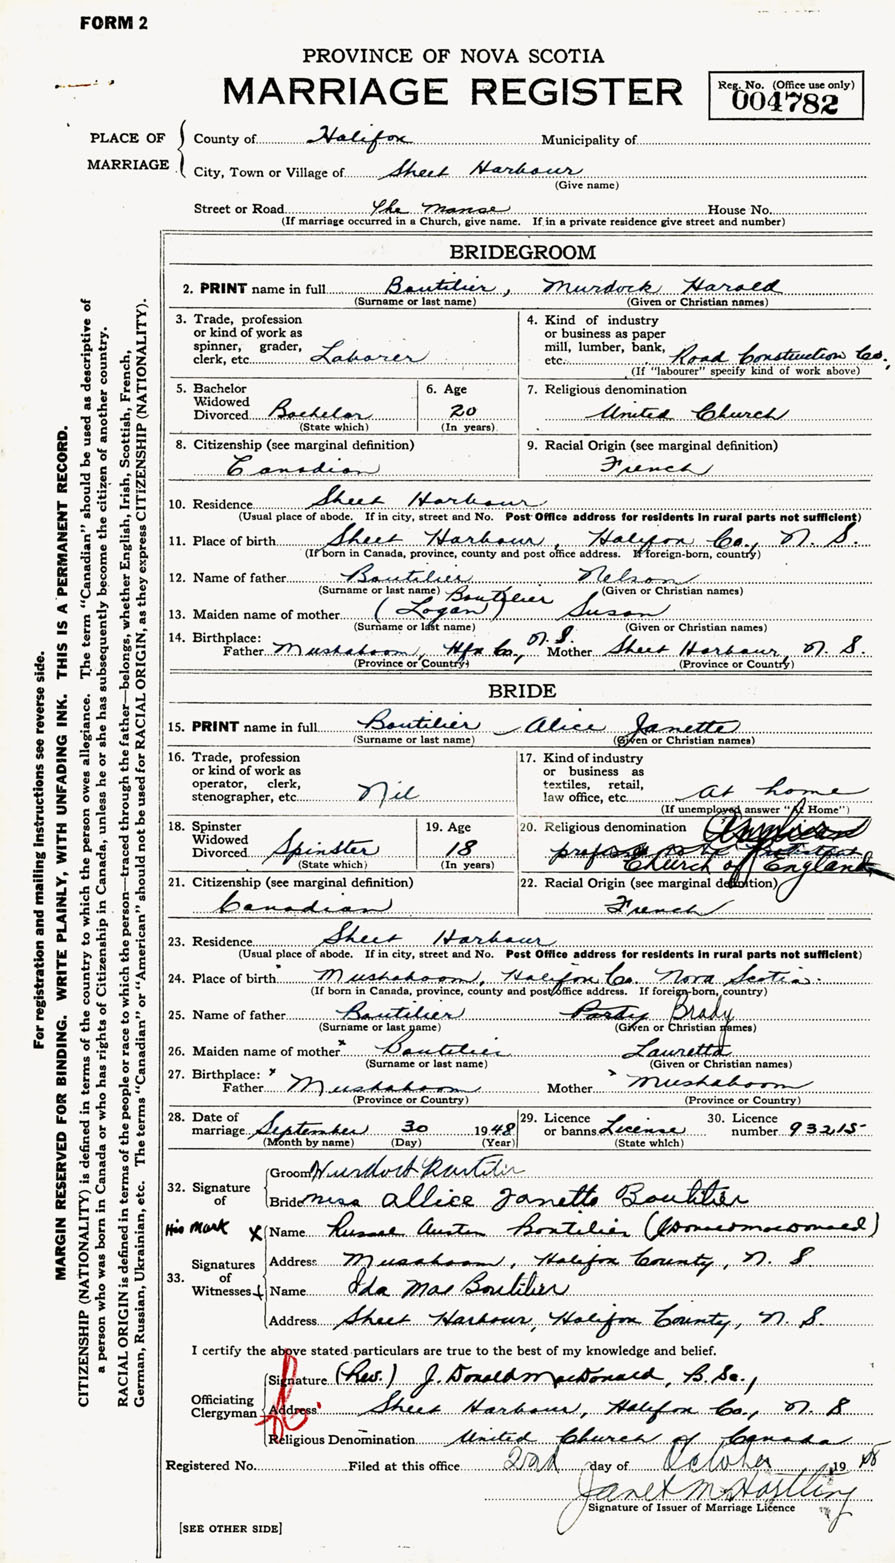 FORM 2
PROVINCE OF NOVA SCOTIA
MARRIAGE REGISTER
Reg. No. (Office use only)
004782
PLACE OF MARRIAGE
County of Halifax Municipality of
City, Town or Village of Sheet Harbour
(Give name)
Street or Road The Manse House No.
(If marriage occurred in a Church, give name. If in a private residence give street and number)
BRIDEGROOM
2. PRINT name in full Boutilier, Murdock Harold
(Surname or last name) (Given or Christian names)
3. Trade, profession
or kind of work as
spinner, grader,
clerk, etc. Laborer
4. Kind of industry
or business as paper
mill, lumber, bank,
etc. Road Construction Co.,
(If "labourer" specify kind of work above)
5. Bachelor
Widowed
Divorced Bachelor
(State which)
6. Age
20
(In years)
7. Religious denomination
United Church
8. Citizenship (see marginal definition)
Canadian
9. Racial Origin (see marginal definition)
French
10. Residence Sheet Harbour
(Usual place of abode. If in city, street and No. Post Office address for residents in rural parts not sufficient)
11. Place of birth Sheet Harbour, Halifax Co., N. S.
(If born in Canada, province, county and post office address. If foreign-born, country)
12. Name of father Boutilier Nelson
(Surname or last name) (Given or Christian names)
Boutilier
13. Maiden name of mother (Logan) Susan
(Surname or last name) (Given or Christian names)
14. Birthplace:
Father Mushaboom, Hfx Co., N. S. Mother Sheet Harbour, N. S.
(Province or Country) (Province or Country)
BRIDE
15. PRINT name in full Boutilier, Alice Janette
(Surname or last name) (Given or Christian names)
16. Trade, profession
or kind of work as
operator, clerk,
stenographer, etc. Nil
17. Kind of industry
or business as
textiles, retail,
law office, etc. At home
(If unemployed answer "At Home")
18. Spinster
Widowed
Divorced Spinster
(State which)
19. Age
18
(In years)
20. Religious denomination
Church of England
21. Citizenship (see marginal definition)
Canadian
22. Racial Origin (see marginal definition)
French
23. Residence Sheet Harbour
(Usual place of abode. If in city, street and No. Post Office address for residents in rural parts not sufficient)
24. Place of birth Mushaboom, Halifax Co. Nova Scotia.
(If born in Canada, province, county and post office address. If foreign-born, country)
25. Name of father Boutilier Brady
(Surname or last name) (Given or Christian names)
26. Maiden name of mother x Boutilier Lauretta
(Surname or last name) (Given or Christian names)
27. Birthplace:
Father Mushaboom Mother Mushaboom
(Province or Country) (Province or Country)
28. Date of
marriage September 30 1948
(Month by name) (Day) (Year)
29. Licence
or banns License
(State which)
30. Licence
number 93215
32. Signature of
Groom Murdock Boutilier
Bride Miss Allice Janette Boutilier
His Mark X
33. Signatures of Witnesses
Name Russel Austen Boutilier (JDonaldMacDonald)
Address Mushaboom, Halifax County, N. S
Name Ida Mae Boutilier
Address Sheet Harbour, Halifax County, N. S.
I certify the above stated particulars are true to the best of my knowledge and belief.
Officiating Clergyman
Signature (Rev.) J. Donald MacDonald, B. Sc.,
Address Sheet Harbour, Halifax Co., N. S
Religious Denomination United Church of Canada
Registered No. Filed at this office 2nd day of October 1948
Janet M Hartling
Signature of Issuer of Marriage Licence
[SEE OTHER SIDE]
For registration and mailing instructions see reverse side.
MARGIN RESERVED FOR BINDING. WRITE PLAINLY, WITH UNFADING INK. THIS IS A PERMANENT RECORD.
CITIZENSHIP (NATIONALITY) is defined in terms of the country to which the person owes allegiance. The term "Canadian" should be used as descriptive of
a person who was born in Canada or who has rights of Citizenship in Canada, unless he or she has subsequently become the citizen of another country.
RACIAL ORIGIN is defined in terms of the people or race to which the person—traced through the father—belongs, whether English, Irish, Scottish, French,
German, Russian, Ukrainian, etc. The terms "Canadian" or "American" should not be used for RACIAL ORIGIN, as they express CITIZENSHIP (NATIONALITY).